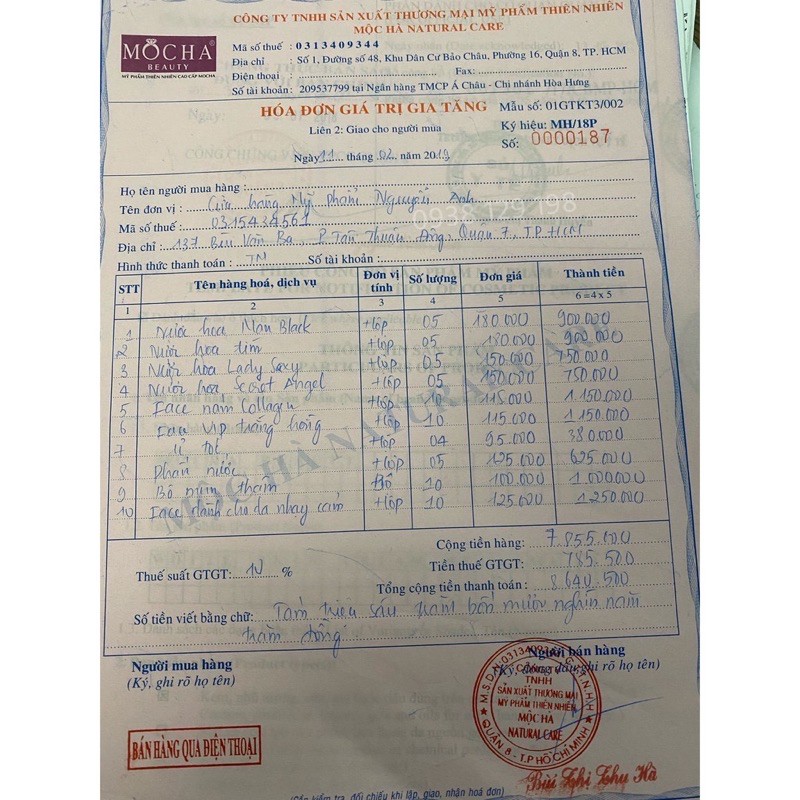 CÔNG TY TNHH SẢN XUẤT THƯƠNG MẠI MỸ PHẨM THIÊN NHIÊN
MỘC HÀ NATURAL CARE
MOCHA
BEAUTY
MỸ PHẨM THIÊN NHIÊN CAO CẤP MOCHA
Mã số thuế : 0313409344
Địa chỉ : Số 1, Đường số 48, Khu Dân Cư Bảo Châu, Phường 16, Quận 8, TP. HCM
Điện thoại : Fax:
Số tài khoản: 209537799 tại Ngân hàng TMCP Á Châu - Chi nhánh Hòa Hưng
HÓA ĐƠN GIÁ TRỊ GIA TĂNG
Mẫu số: 01GTKT3/002
Liên 2: Giao cho người mua
Ký hiệu: MH/18P
Ngày 11 tháng 02 năm 2019
Số: 0000187
Họ tên người mua hàng :
Tên đơn vị : Cửa hàng Mỹ phẩm Nguyễn Anh
0938 129 198
Mã số thuế : 0315434561
Địa chỉ : 137 Bùi Văn Ba, P. Tân Thuận Đông, Quận 7, TP HCM
Hình thức thanh toán : TM Số tài khoản :
STT Tên hàng hoá, dịch vụ Đơn vị tính Số lượng Đơn giá Thành tiền
1 2 3 4 5 6 = 4 x 5
1 Nước hoa Man Black Hộp 05 180.000 900.000
2 Nước hoa tím Hộp 05 180.000 900.000
3 Nước hoa Lady Sexy Hộp 05 150.000 750.000
4 Nước hoa Secret Angel Hộp 05 150.000 750.000
5 Face nám Collagen Hộp 10 115.000 1.150.000
6 Face VIP trắng hồng Hộp 10 115.000 1.150.000
7 Ủ tóc Hộp 04 95.000 380.000
8 Phấn nước Hộp 05 125.000 625.000
9 Bộ mụn thâm Bộ 10 100.000 1.000.000
10 Face dành cho da nhạy cảm Hộp 10 125.000 1.250.000
MỘC HÀ NATURAL CARE
Cộng tiền hàng: 7.855.000
Thuế suất GTGT: 10 % Tiền thuế GTGT: 785.500
Tổng cộng tiền thanh toán : 8.640.500
Số tiền viết bằng chữ: Tám triệu sáu trăm bốn mươi nghìn năm
trăm đồng
Người mua hàng
(Ký, ghi rõ họ tên)
Người bán hàng
(Ký, đóng dấu, ghi rõ họ tên)
M.S.D.N: 0313409344 - C.T.T.N.H.H
CÔNG TY
TNHH
SẢN XUẤT THƯƠNG MẠI
MỸ PHẨM THIÊN NHIÊN
MỘC HÀ
NATURAL CARE
QUẬN 8 - T.P HỒ CHÍ MINH
BÁN HÀNG QUA ĐIỆN THOẠI
Bùi Thị Thu Hà
(Cần kiểm tra, đối chiếu khi lập, giao, nhận hoá đơn)